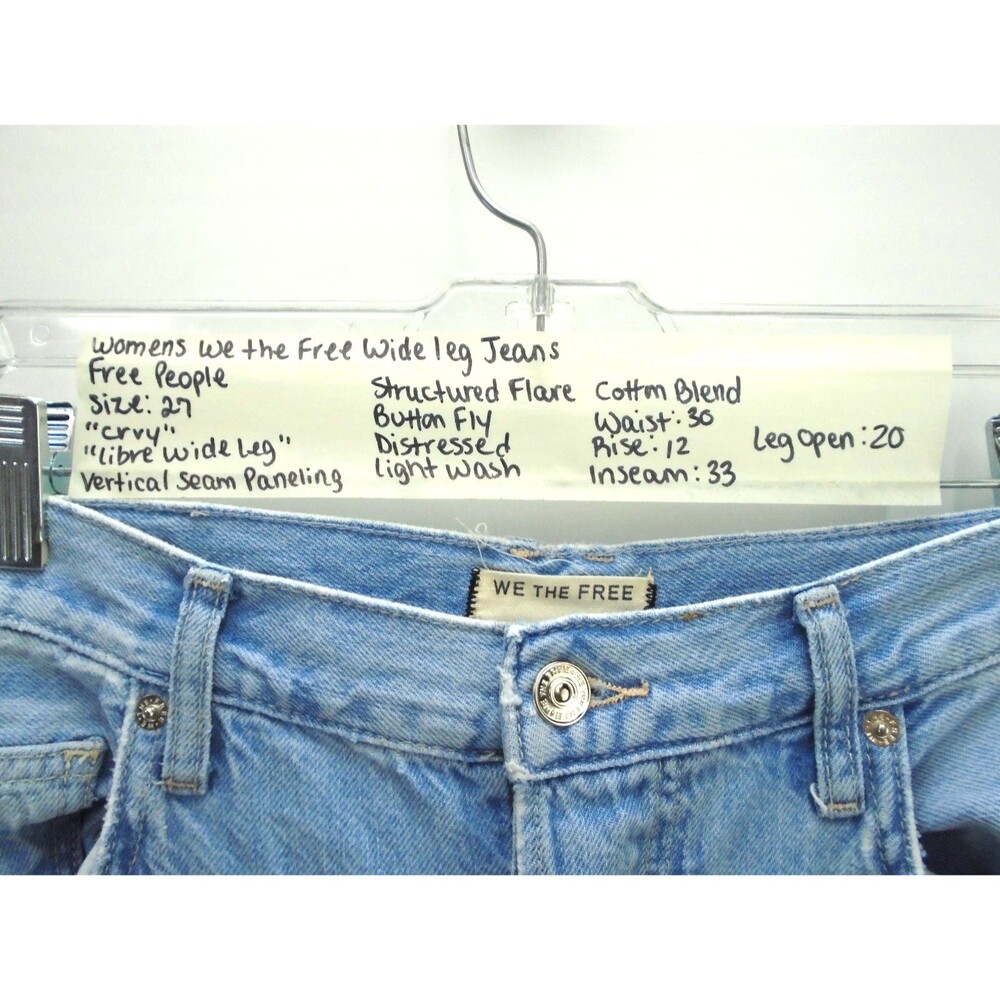 Womens We the Free Wide leg Jeans
Free People
Size: 27
"crvy"
"libre wide leg"
Vertical Seam Paneling
Structured Flare
Button Fly
Distressed
Light Wash
Cotton Blend
Waist: 30
Rise: 12
Inseam: 33
Leg Open: 20
WE THE FREE